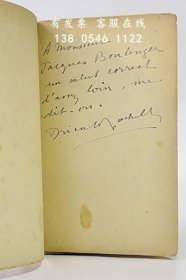 有发票 客服在线
138 0546 1122
A Monsieur
Jacques Boulenger
un salut correct
d'assez loin, me
dit-on.
Drieu la Rochelle